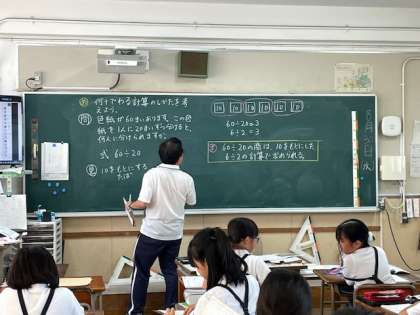 め 何十でわる計算のしかたを考えよう。
問 色紙が60まいあります。この色
紙を1人に20まいずつ分けると、
何人に分けられますか。
式 60÷20
見 10をもとにする
10 10 10 10 10 10
60÷20=3
6÷2=3
ま 60÷20の商は、10をもとにした
6÷2の計算で求められる。